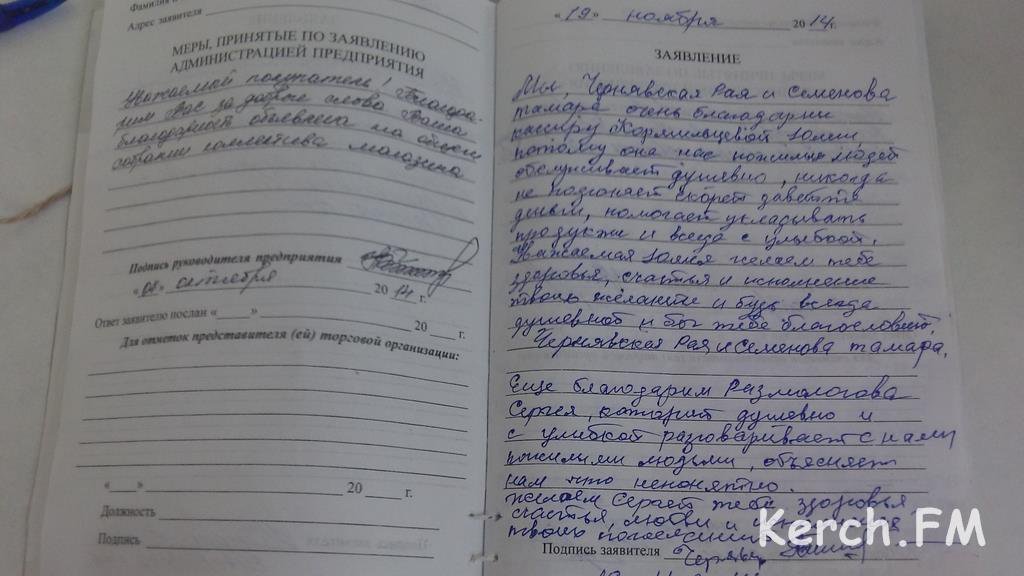 Фамилия и
Адрес заявителя
МЕРЫ, ПРИНЯТЫЕ ПО ЗАЯВЛЕНИЮ
АДМИНИСТРАЦИЕЙ ПРЕДПРИЯТИЯ
Уважаемый покупатель! Благода-
рим Вас за добрые слова. Ваша
благодарность объявлена на общем
собрании коллектива магазина
Подпись руководителя предприятия
"08" сентября 2014 г.
Ответ заявителю послан «____» 20 г.
Для отметок представителя (ей) торговой организации:
«____» 20 ____ г.
Должность
Подпись
"19" ноября 2014г.
ЗАЯВЛЕНИЕ
Мы, Чернявская Рая и Семенова
тамара очень благодарни
кассиру Кормильцевой Юлии,
потому она нас пожилых людей
обслуживает душевно, никогда
не подгоняет скорей
деньги, помогает укладывать
продукти и всегда с улыбкой.
Уважаемая Юлия желаем тебе
здоровья, счастья и исполнение
твоих желаний и будь всегда
душевной и бог тебе благословит.
Чернявская Рая и Семенова тамара.
Еще благодарим Размологова
Сергея, каторий душевно и
с улибкой разговаривает с нами
пожилыми людьми, объясняет
нам что непонятно.
желаем Сергей тебе здоровья
счастья, любви и
твоих
Подпись заявителя Черняв
Kerch.FM